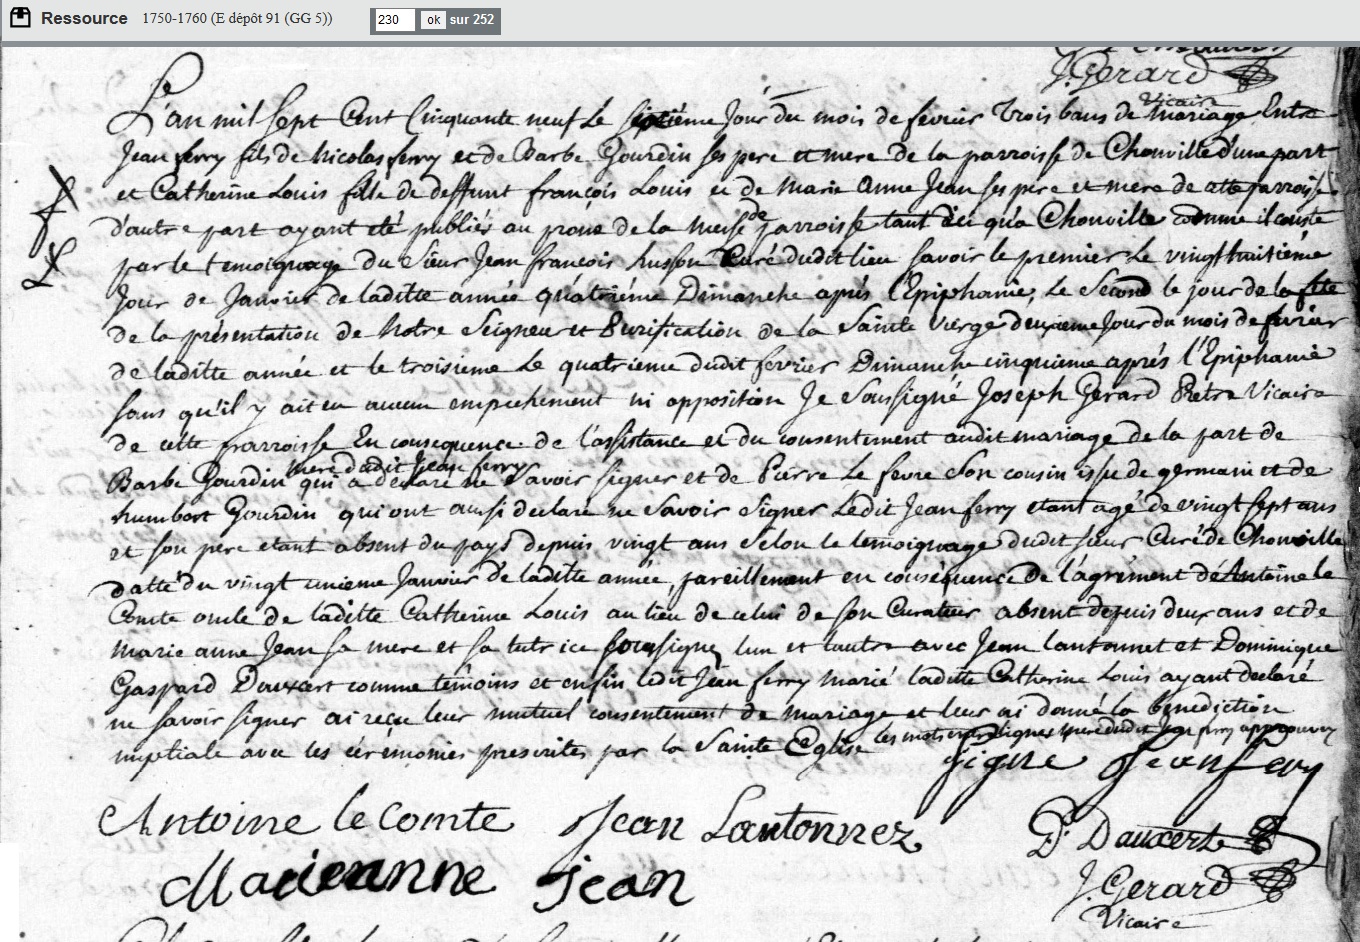 Ressource 1750-1760 (E dépôt 91 (GG 5)) 230 ok sur 252
J. Gerard
Vicaire
L'an mil sept Cent Cinquante neuf Le septième Jour du mois de fevrier trois bans de Mariage Entre
Jean ferry fils de Nicolas ferry et de Barbe Gourdin ses pere et mere de la parroisse de Chonville d'une part
et Catherine Louis fille de deffunt françois Louis et de Marie Anne Jean ses pere et mere de cette parroisse
d'autre part ayant eté publiés au prone de la Messe de parroisse tant d'ici qu'a Chonville comme il conste
par le temoignage du Sieur Jean francois husson Curé dudit lieu savoir le premier Le vingt huitième
Jour de Janvier de laditte année quatrième Dimanche aprés l'Epiphanie, Le Second le jour de la fête
de la présentation de Notre Seigneur et Purification de la Sainte Vierge deuxieme Jour du mois de fevrier
de laditte année et le troisieme Le quatrième dudit fevrier Dimanche cinquieme aprés l'Epiphanie
sans qu'il y ait eu aucun empechement ni opposition Je Soussigné Joseph Gerard Pretre Vicaire
de cette parroisse En consequence de l'assistance et du consentement audit mariage de la part de
Barbe Gourdin mere dudit Jean ferry qui a declaré ne Savoir signer et de Pierre Le fevre Son cousin issu de germain et de
humbert Gourdin qui ont aussi declaré ne Savoir Signer Ledit Jean ferry etant agé de vingt sept ans
et son pere etant absent du pays depuis vingt ans Selon le temoignage dudit sieur Curé de Chonville
datté du vingt unieme Janvier de laditte année, pareillement en conséquence de l'agrément de Antoine le
Comte oncle de laditte Catherine Louis au lieu de celui de son Curateur absent depuis deux ans et de
Marie anne Jean sa mere et sa tutrice soussignez lun et lautre avec Jean Lantonnet et Dominique
Gaspard Dauxert comme témoins et enfin ledit Jean ferry marié laditte Catherine Louis ayant declaré
ne savoir signer ai reçu leur mutuel consentement de Mariage et leur ai donné la benediction
nuptiale avec les cérémonies prescrites par la Sainte Eglise les mots entre lignes mere dudit Jean ferry approuvez
signe Jean Fery
Antoine le Comte Jean Lantonnez D. Dauxert
Marieanne Jean J. Gerard
Vicaire